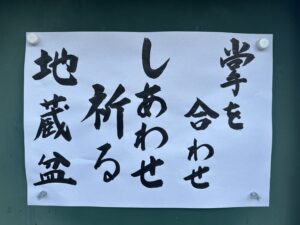 掌を
合わせ
しあわせ
祈る
地蔵盆